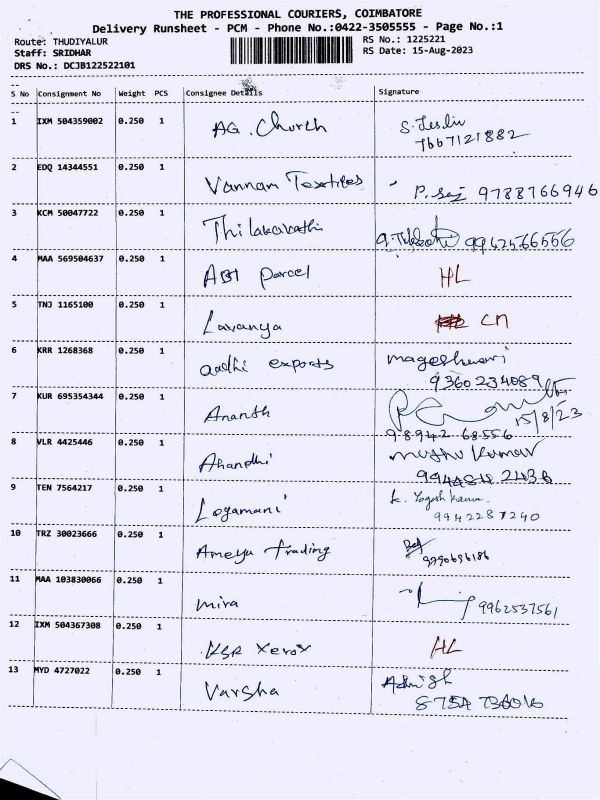 THE PROFESSIONAL COURIERS, COIMBATORE
Delivery Runsheet - PCM - Phone No.:0422-3505555 - Page No.:1
Route: THUDIYALUR
RS No.: 1225221
Staff: SRIDHAR
RS Date: 15-Aug-2023
DRS No.: DCJB122522101
S No Consignment No Weight PCS Consignee Details Signature
1 IXM 504359002 0.250 1 AG. Church S. Leslin
7667121882
2 EDQ 14344551 0.250 1 Vannam Textiles P. 9788766946
3 KCM 50047722 0.250 1 Thilakavathi 9942566566
4 MAA 569504637 0.250 1 ABT parcel HL
5 TNJ 1165100 0.250 1 Lavanya CN
6 KRR 1268368 0.250 1 aadhi exports mageshwari
9360234089
7 KUR 695354344 0.250 1 Ananth 15/8/23
98942 68556
8 VLR 4425446 0.250 1 Ahandhi muthu kumar
994484 2436
9 TEN 7564217 0.250 1 Logamani K. Yogesh Kumar
9942287240
10 TRZ 30023666 0.250 1 Ameya trading
9790696186
11 MAA 103830066 0.250 1 mira 9962537561
12 IXM 504367308 0.250 1 KSR Xerox HL
13 MYD 4727022 0.250 1 Varsha Ashish
8754 736016